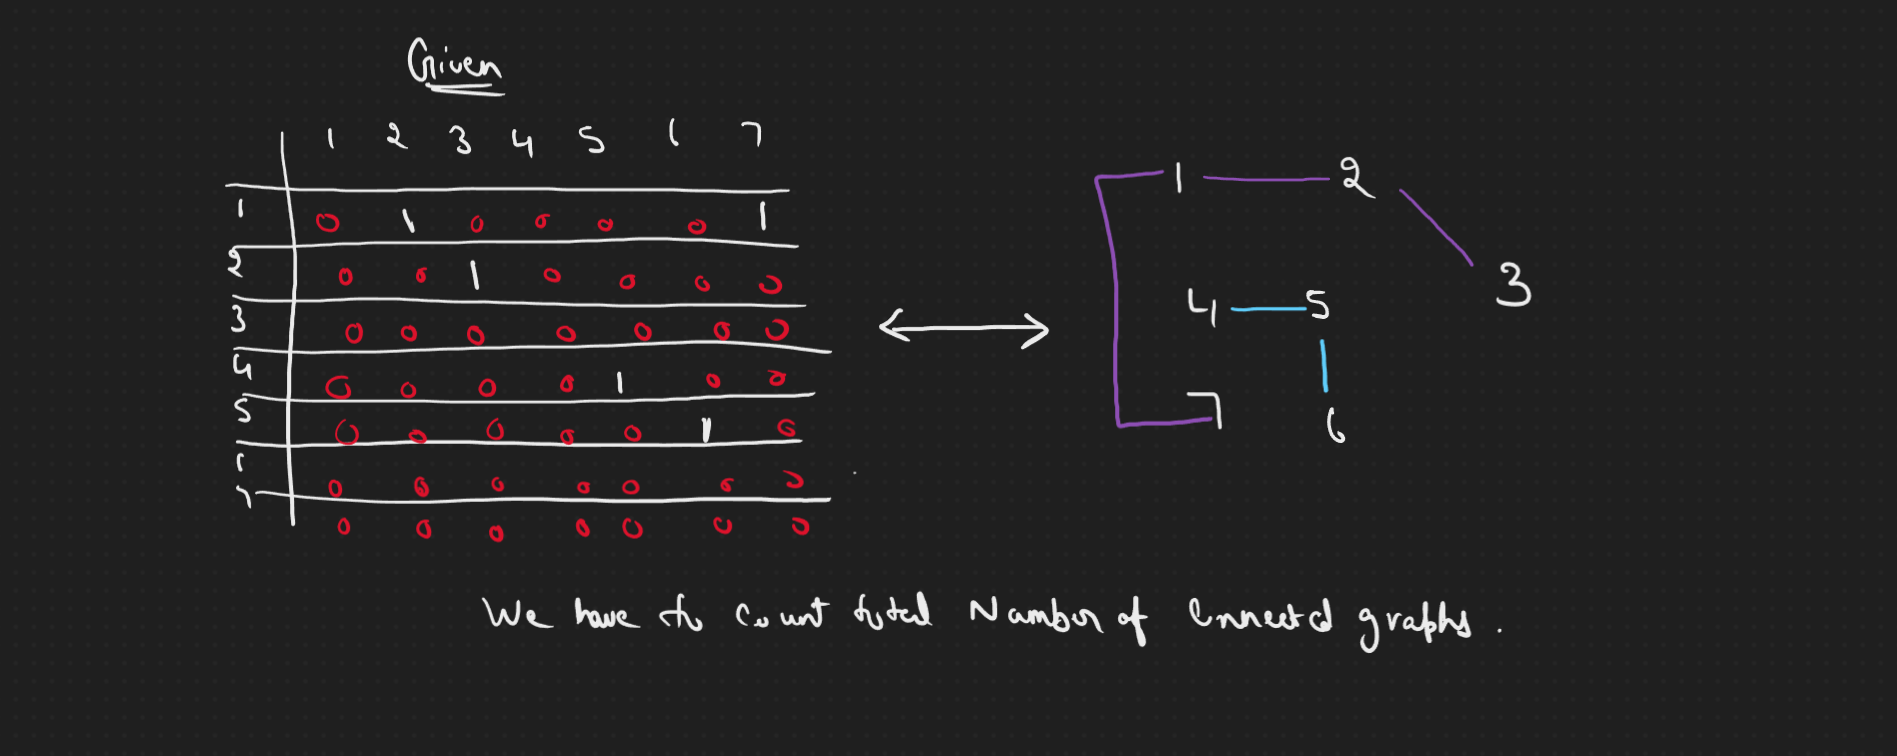 Given
1 2 3 4 5 6 7
1 0 1 0 0 0 0 1
2 0 0 1 0 0 0 0
3 0 0 0 0 0 0 0
4 0 0 0 0 1 0 0
5 0 0 0 0 0 1 0
6 0 0 0 0 0 0 0
7 0 0 0 0 0 0 0
1 2
3
4 5
7 6
We have to count total Number of Connected graphs.